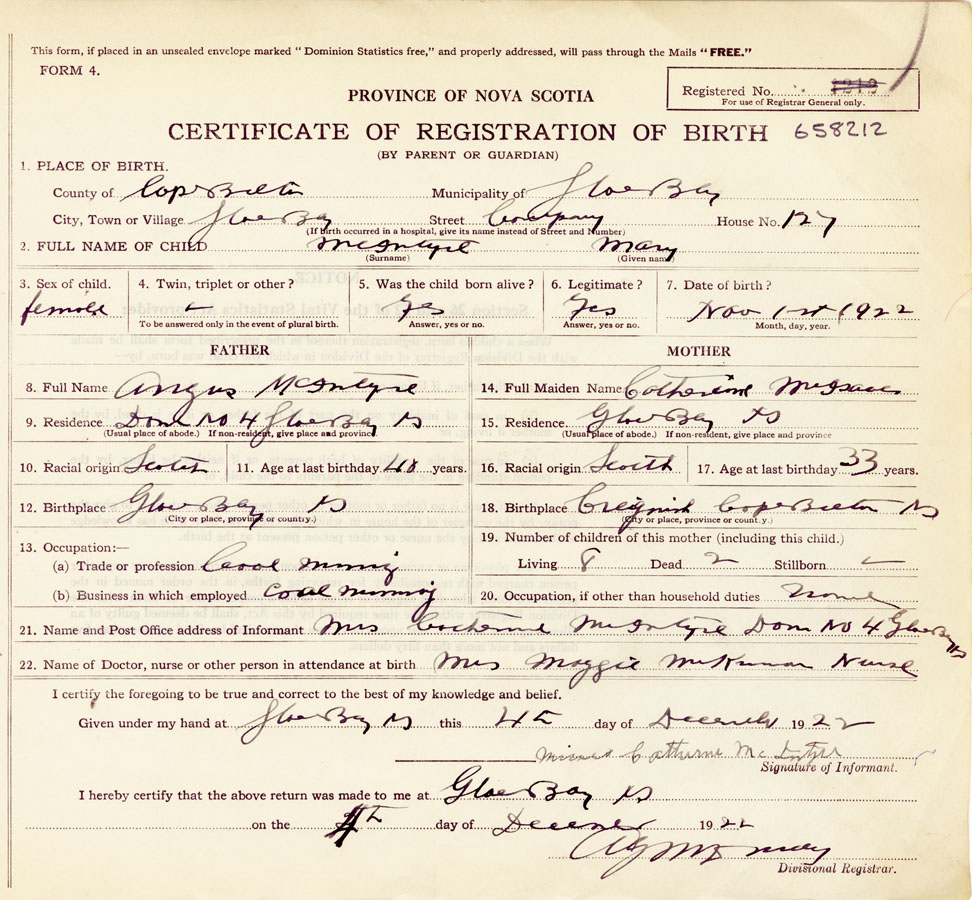 This form, if placed in an unsealed envelope marked "Dominion Statistics free," and properly addressed, will pass through the Mails "FREE."
FORM 4.
Registered No. 1213
For use of Registrar General only.
PROVINCE OF NOVA SCOTIA
CERTIFICATE OF REGISTRATION OF BIRTH 658212
(BY PARENT OR GUARDIAN)
1. PLACE OF BIRTH.
County of Cape Breton Municipality of Glace Bay
City, Town or Village Glace Bay Street Company House No. 127
(If birth occurred in a hospital, give its name instead of Street and Number)
2. FULL NAME OF CHILD McIntyre Mary
(Surname) (Given name)
3. Sex of child. 4. Twin, triplet or other? 5. Was the child born alive? 6. Legitimate? 7. Date of birth?
female - Yes Yes Nov 1st 1922
To be answered only in the event of plural birth. Answer, yes or no. Answer, yes or no. Month, day, year.
FATHER MOTHER
8. Full Name Angus McIntyre 14. Full Maiden Name Catherine McIsaac
9. Residence Dom No 4 Glace Bay NS 15. Residence Glace Bay NS
(Usual place of abode.) If non-resident, give place and province. (Usual place of abode.) If non-resident, give place and province
10. Racial origin Scotch 11. Age at last birthday 40 years. 16. Racial origin Scotch 17. Age at last birthday 33 years.
12. Birthplace Glace Bay NS 18. Birthplace Creignish Cape Breton NS
(City or place, province or country.) (City or place, province or country.)
19. Number of children of this mother (including this child.)
13. Occupation:—
(a) Trade or profession Coal Mining Living 8 Dead 2 Stillborn -
(b) Business in which employed Coal mining 20. Occupation, if other than household duties None
21. Name and Post Office address of Informant Mrs Catherine McIntyre Dom No 4 Glace Bay NS
22. Name of Doctor, nurse or other person in attendance at birth Mrs Maggie McKinnon Nurse
I certify the foregoing to be true and correct to the best of my knowledge and belief.
Given under my hand at Glace Bay NS this 4th day of December 1922
Catherine McIntyre
Signature of Informant.
I hereby certify that the above return was made to me at Glace Bay NS
on the 4th day of December 1922
Divisional Registrar.